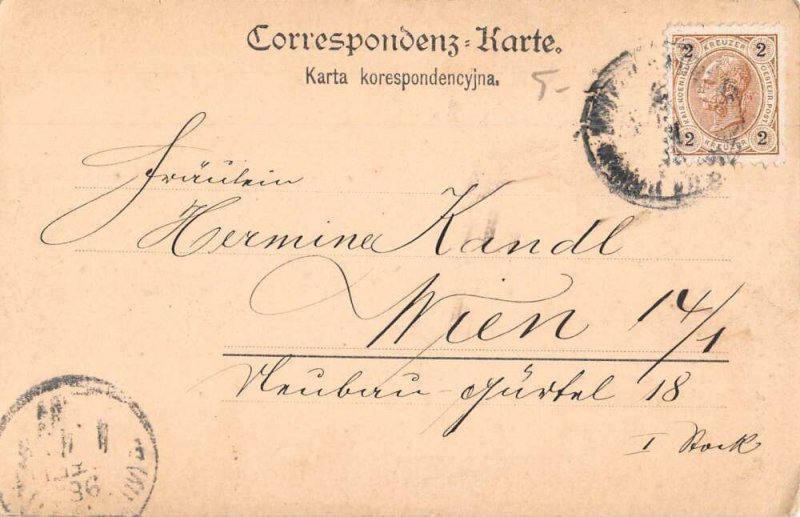 Correspondenz-Karte.
Karta korespondencyjna.
5-
2 KREUZER 2
KAIS. KOENIGL. OESTERR. POST.
2 KREUZER 2
Fräulein
Hermine Kandl
Wien 14/1
Neubau-gürtel 18
I Stock
86